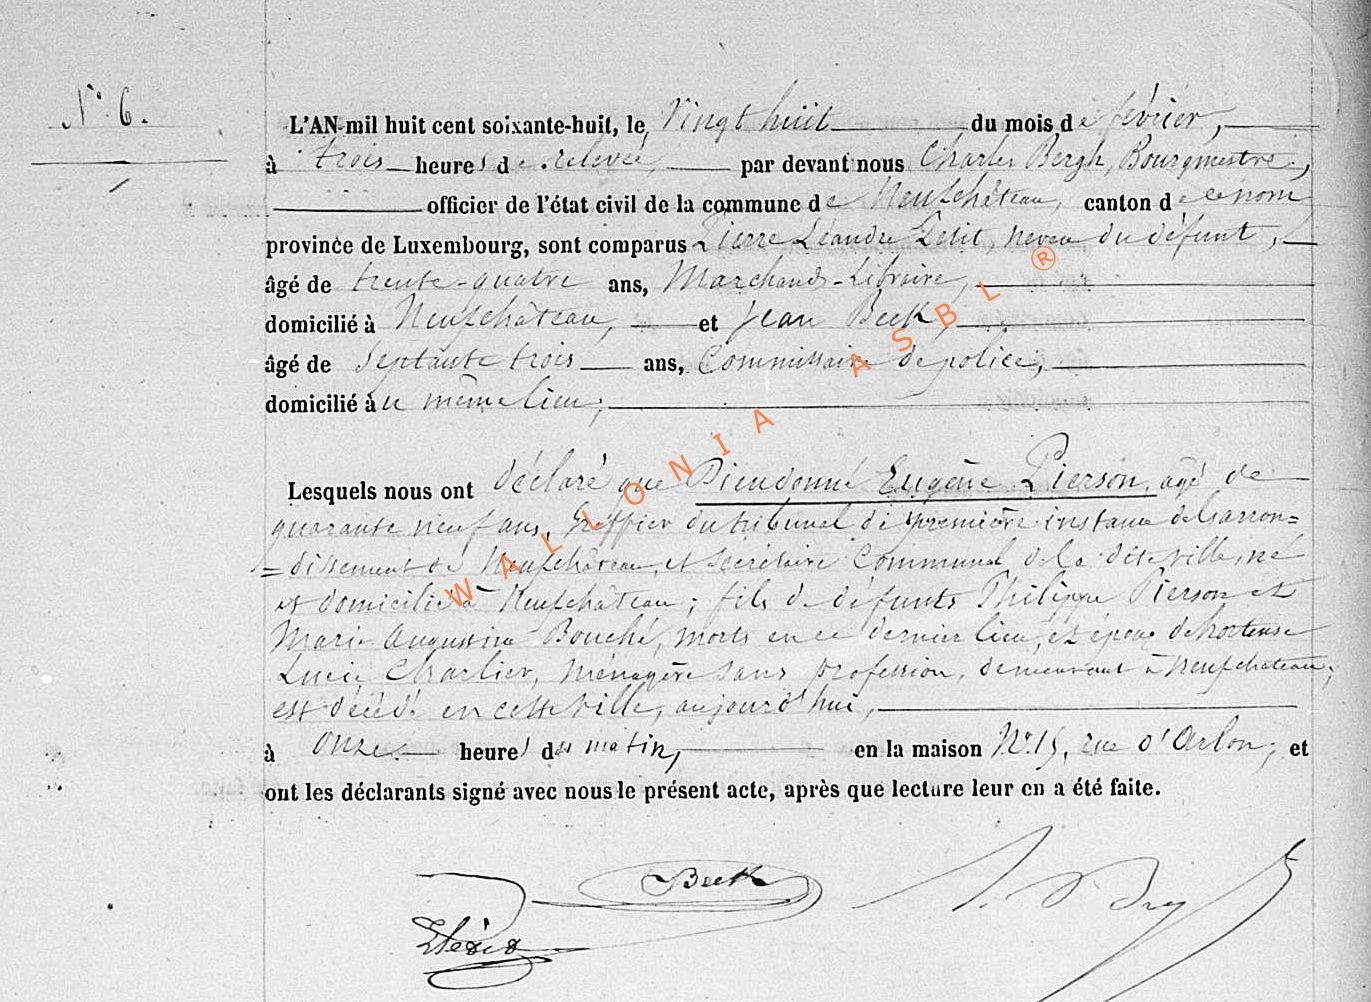 N° 6.
L'AN mil huit cent soixante-huit, le Vingt huit du mois de février,
à trois heures de relevée, par devant nous Charles Bergh, Bourgmestre,
officier de l'état civil de la commune de Neufchâteau, canton de ce nom
province de Luxembourg, sont comparus Pierre Léandre Petit, neveu du défunt,
âgé de trente-quatre ans, Marchand-Libraire,
domicilié à Neufchâteau, et Jean Beck,
âgé de Septante trois ans, Commissaire de police,
domicilié au même lieu;
Lesquels nous ont déclaré que Dieudonné Eugène Pierson, agé de
quarante neuf ans, Greffier du tribunal de première instance de l'arron=
=dissement de Neufchâteau, et Secrétaire Communal de la dite ville, né
et domicilié à Neufchâteau; fils de défunts Philippe Pierson et
Marie Augustine Bouché, morts en ce dernier lieu, et époux de hortense
Lucie Charlier, ménagère sans profession, demeurant à Neufchateau;
est décédé en cette ville, aujourd'hui,
à onze heures du matin, en la maison N° 15, rue d'Arlon; et
ont les déclarants signé avec nous le présent acte, après que lecture leur en a été faite.
Beck
WALLONIA ASBL ®